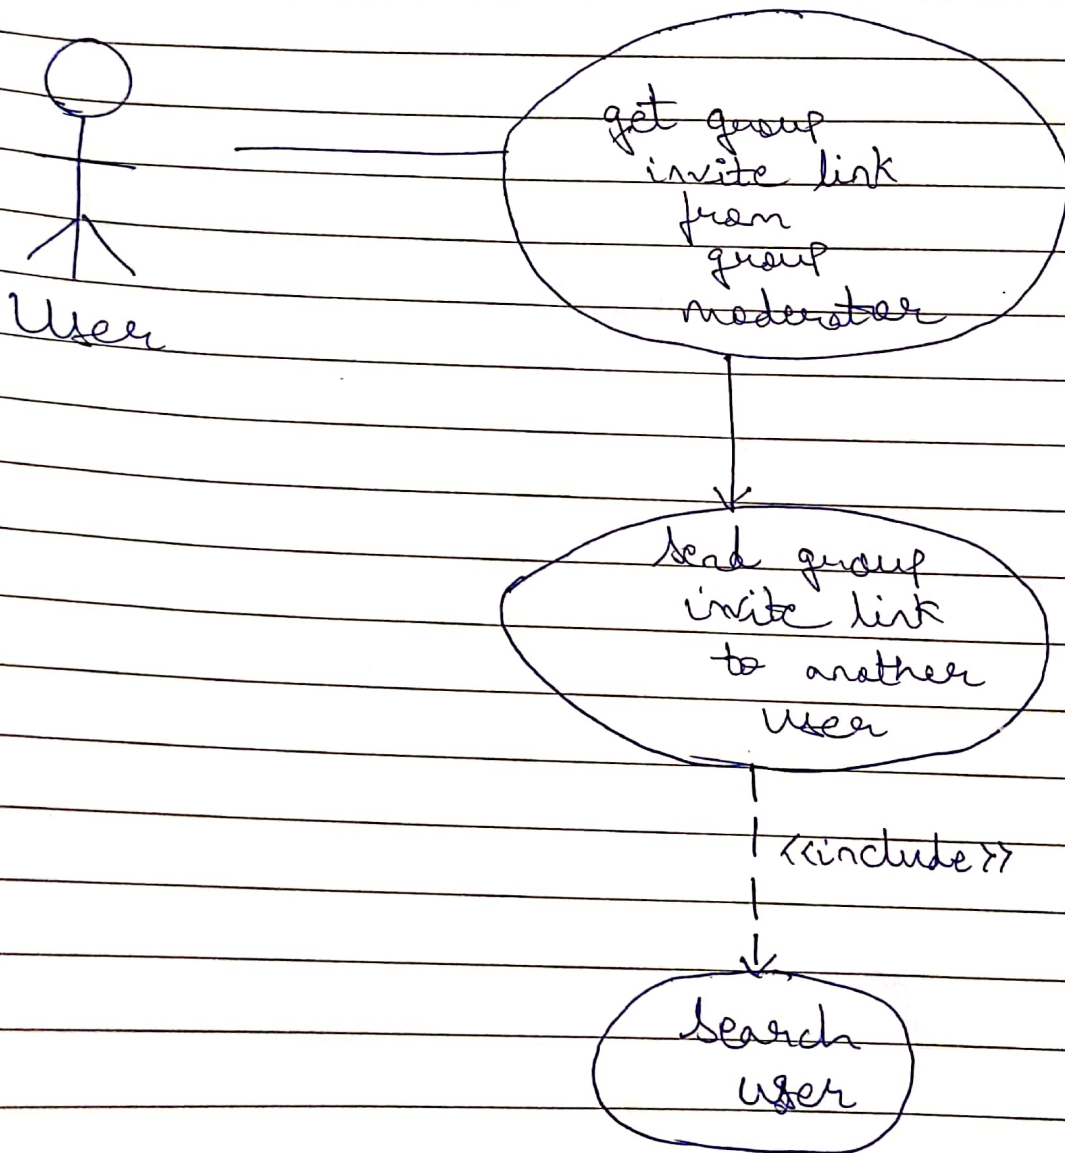 get group
invite link
from
group
moderator
User
send group
invite link
to another
user
<<include>>
search
user